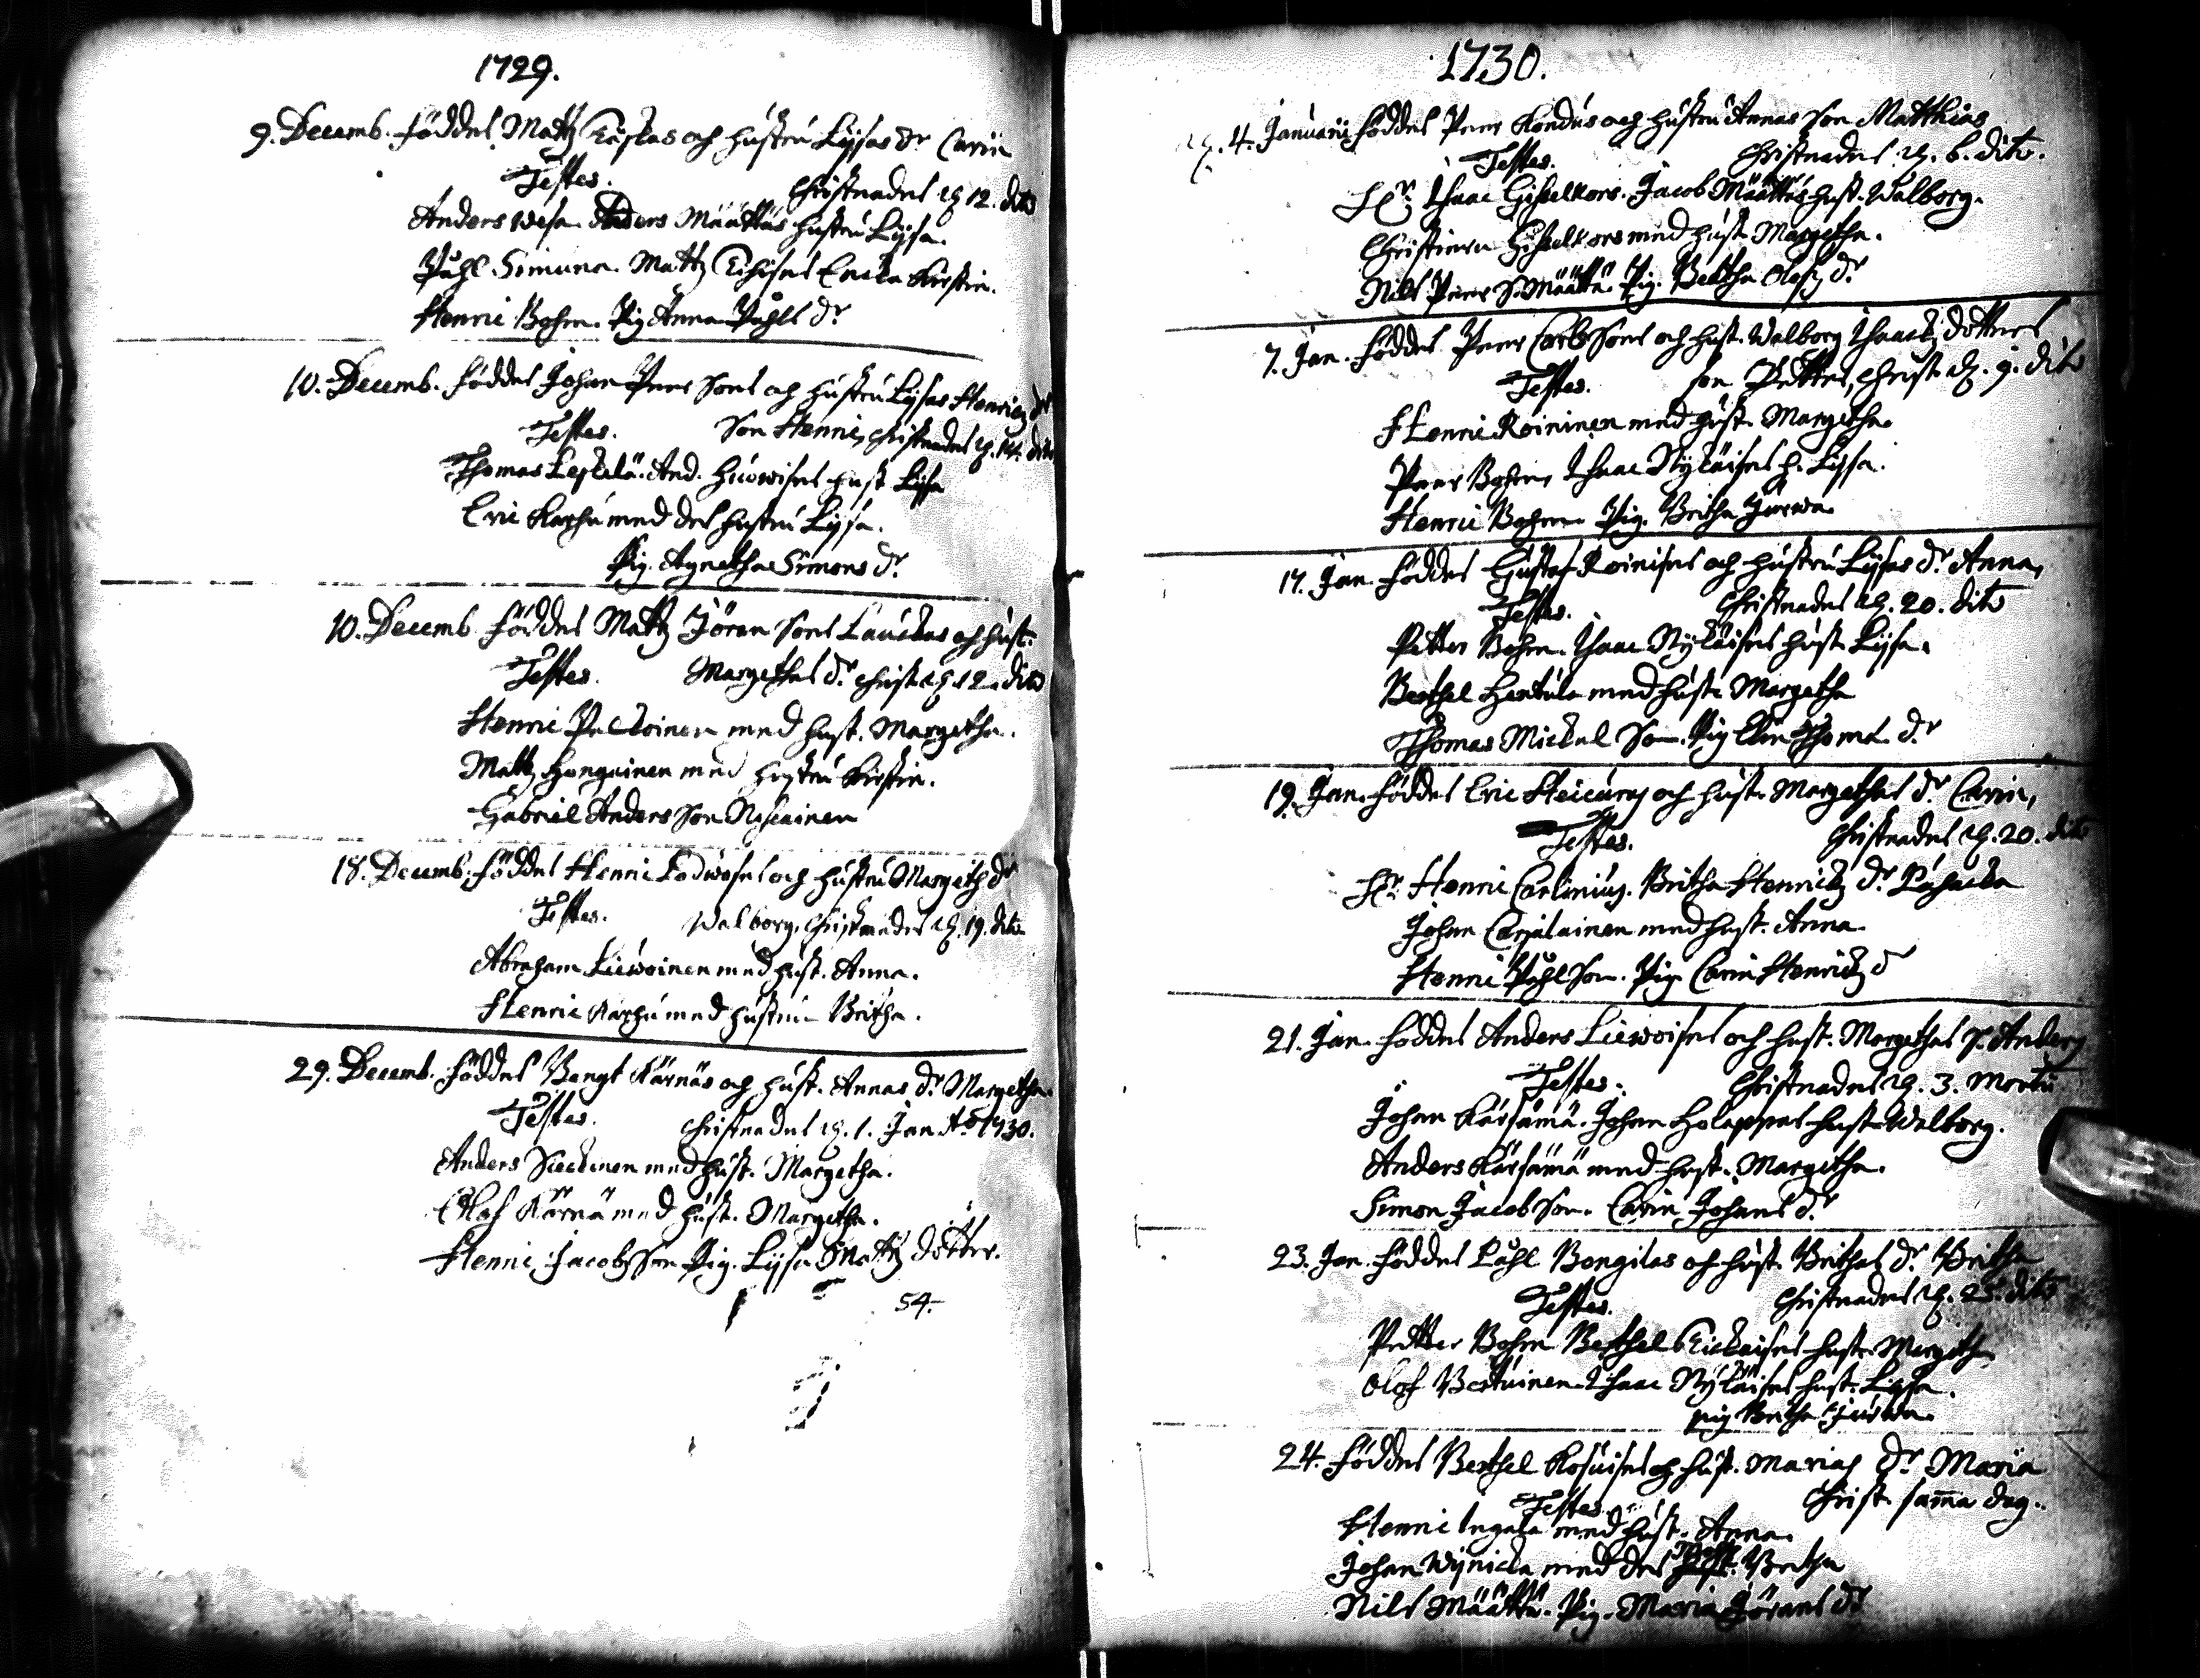 1729.
9. Decemb. föddes Mattz och hustru Lijsas dr Carin
Testes. Christnades d. 12. dito
Anders Wesa. Anders Määttäs hustru Lijsa.
Påhl Simuna. Mattz Enckia Kirstin.
Henric Bohm. Pig. Anna Påhls dr
10. Decemb. föddes Johan Peers Sons och hustru Lijsas Henricz dr
Testes. Son Henric, christnades d. 14. dito
Thomas Leskelä. And. hust Lijsa
Eric Karhu med des hustru Lijsa.
Pig. Agnetha Simons dr.
10. Decemb föddes Mattz Jöran Sons Lauckas och hust.
Testes. Margethas dr. christ. d. 12. dito
Henric Peltoinen med hust. Margetha.
Mattz Hongainen med hustru Kirstin.
Gabriel Anders Son Niskainen
18. Decemb. föddes Henric och hustru Margeth dr
Testes. Walborg, Christnades d. 19. dito
Abraham Liewoinen med hust. Anna.
Henric Karhu med hustru Britha.
29. Decemb. föddes Bengt Kärnäs och hust. Annas dr. Margetha.
Testes. Christnades d. 1. Jan Ao 1730.
Anders Sieckinen med hust. Margetha.
Olof Kärnä med hust. Margetha.
Henric Jacobs Son Pig. Lijsa Mattz dotter.
54.
1730.
d. 4. Januarii föddes Peer Kondus och hustru Annas Son Matthias
Testes. Christnades d. 6. dito.
Hr. Isaac Giselkors. Jacob Määttäs hust. Walborg.
Christiern Giselkors med hust. Margetha.
Nils Peers S. Määttä. Pig. Beatha Olofz dr
7. Jan. föddes Peer Carls Sons och hust. Walborg Isaackz dotters
Testes. son Petter, christ. d. 9. dito
Henric Roininen med hust. Margetha.
Peer Bohm, Isaac Nyläises h. Lijsa.
Henric Bohm. Pig. Britha Jurwa.
17. Jan. föddes Gustaf Roinises och hustru Lijsas dr. Anna,
Testes. Christnades d. 20. dito
Petter Bohm. Isaac Nyläises hust. Lijsa.
Berthel Hertula med hust. Margetha
Thomas Mickel Son. Pig Elin Thoma dr
19. Jan. föddes Eric Heicuras och hust. Margethas dr. Carin,
Testes. Christnades d. 20. dito
Hr. Henric Carlenius. Britha Henrickz dr
Johan Carjalainen med hust. Anna.
Henric Påhl Son. Pig. Carin Henrickz d
21. Jan. föddes Anders Liewoises och hust. Margethas S. Anders
Testes. Christnades d. 3. Martii
Johan Kärsämä. Johan Holappas hust. Walborg.
Anders Kärsämä med hust. Margetha.
Simon Jacob Son. Carin Johans dr
23. Jan. föddes Påhl Bongilas och hust. Brithas dr. Britha
Testes. Christnades d. 25. dito
Petter Bohm Berthel hust. Margeth
Olof Isaac Nyläises hust. Lijsa.
pig Britha Jurwa.
24. föddes Berthel och hust. Marias dr Maria
Testes. Christ. samma dag.
Henric Ingala med hust. Anna.
Johan Wynicka med des hust. Bretha
Nils Määttä. Pig. Maria Jörans dr